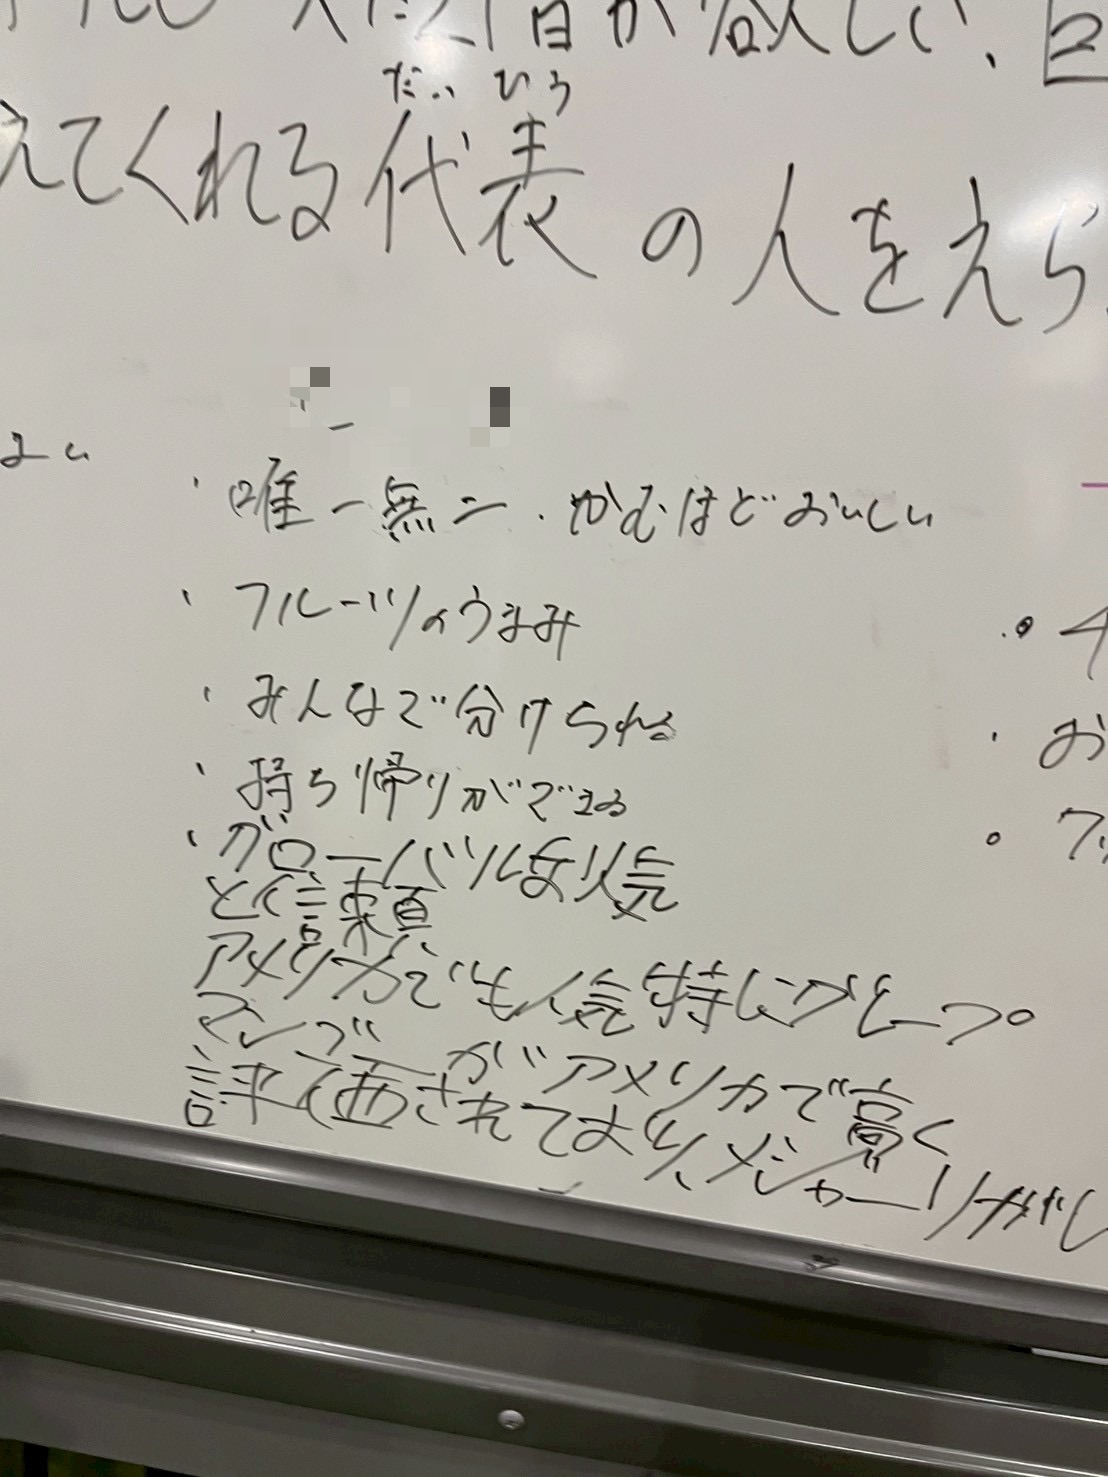 が欲しい、
だいひょう
えてくれる代表の人をえら
・唯一無二・かむほどおいしい
・フルーツのうまみ
・みんなで分けられる
・持ち帰りができる
・グローバルな人気
と信頼
アメリカでも人気特にグミーつ。
マンゴーがアメリカで高く
評価されており、メジャーリーガーし
お